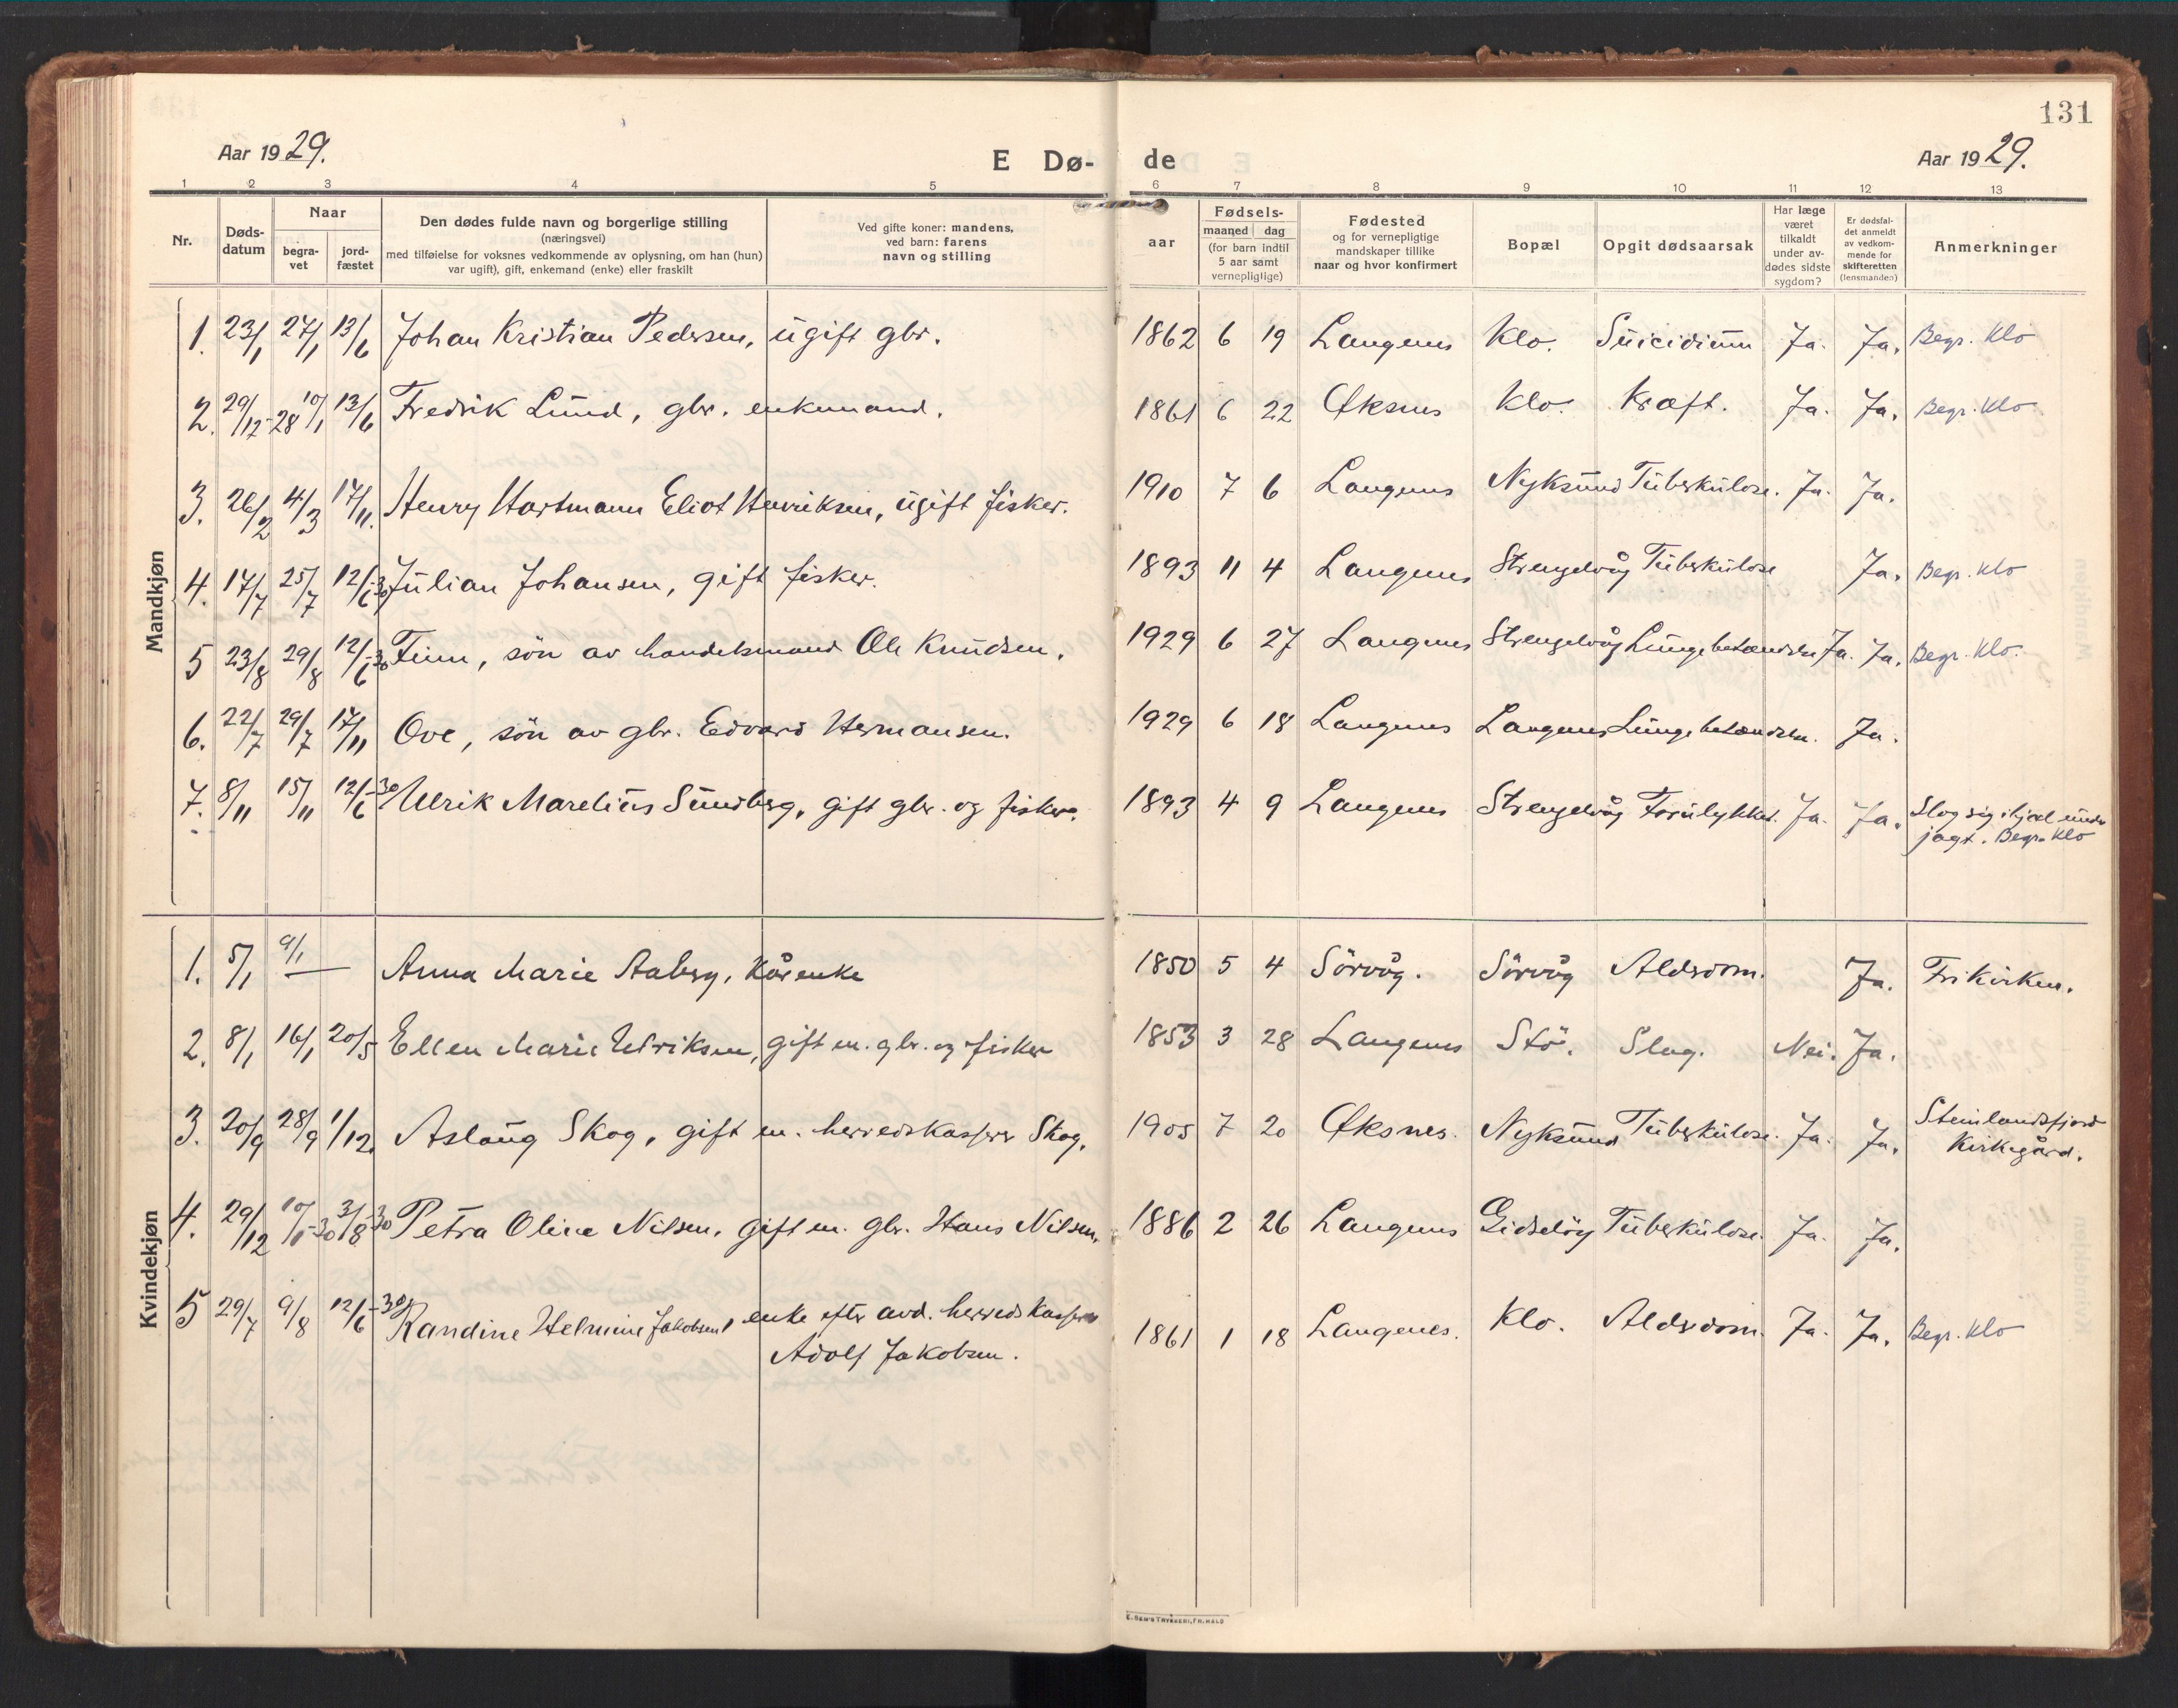 131
Aar 1929. E Dø- de Aar 1929.
1 2 3 4 5 6 7 8 9 10 11 12 13
Nr. Døds-datum Naar begra-vet jord-fæstet Den dødes fulde navn og borgerlige stilling (næringsvei) med tilføielse for voksnes vedkommende av oplysning, om han (hun) var ugift), gift, enkemand (enke) eller fraskilt Ved gifte koner: mandens, ved barn: farens navn og stilling Fødsels- aar maaned dag (for barn indtil 5 aar samt vernepligtige) Fødested og for vernepligtige mandskaper tillike naar og hvor konfirmert Bopæl Opgit dødsaarsak Har læge været tilkaldt under av-dødes sidste sygdom? Er dødsfal-det anmeldt av vedkom-mende for skifteretten (lensmanden) Anmerkninger
Mandkjøn
1. 23/1 27/1 13/6 Johan Kristian Pedersen, ugift gbr. 1862 6 19 Langenes Klo. Suicidium Ja. Ja. Begr. Klo
2. 29/12-28 10/1 13/6 Fredrik Lund, gbr. enkemand. 1861 6 22 Øksnes Klo. Kræft. Ja. Ja. Begr. Klo
3. 26/2 4/3 17/11. Henry Hartmann Eliot Henriksen, ugift fisker. 1910 7 6 Langenes Nyksund Tuberkulose. Ja. Ja.
4. 17/7 25/7 12/6-30 Julian Johansen, gift fisker. 1893 11 4 Langenes Strengelvåg Tuberkulose Ja. Begr. Klo
5 23/8 29/8 12/6-30 Finn, sön av handelsmand Ole Knudsen. 1929 6 27 Langenes Strengelvåg Lungebetændelse Ja. Ja. Begr. Klo.
6. 22/7 29/7 17/11 Ove, sön av gbr. Edvard Hermansen. 1929 6 18 Langenes Langenes Lungebetændelse. Ja.
7. 8/11 15/11 12/6-30 Ulrik Marelius Sundberg, gift gbr. og fisker. 1893 4 9 Langenes Strengelvåg Forulykket. Ja. Ja. Slog sig ihjæl under
jagt. Begr. Klo
Kvindekjøn
1. 5/1 9/1 — Anna Marie Aaberg, Kårenke 1850 5 4 Sörvåg. Sörvåg Alderdom. Ja. Frikirken.
2. 8/1 16/1 20/5 Ellen Marie Ulriksen, gift m. gbr. og fisker 1853 3 28 Langenes Stö. Slag. Nei. Ja.
3. 20/9 28/9 1/12. Aslaug Skog, gift m. herredskasserer Skog. 1905 7 20 Øksnes. Nyksund Tuberkulose. Ja. Ja. Steinlandsfjord
Kirkegård.
4. 29/12 10/1-30 3/8-30 Petra Oline Nilsen, gift m. gbr. Hans Nilsen. 1886 2 26 Langenes Gidselöy Tuberkulose. Ja. Ja.
5 29/7 9/8 12/6-30 Randine Helmine Jakobsen, enke efter avd. herredskasserer 1861 1 18 Langenes. Klo. Alderdom. Ja. Ja. Begr. Klo
Adolf Jakobsen.